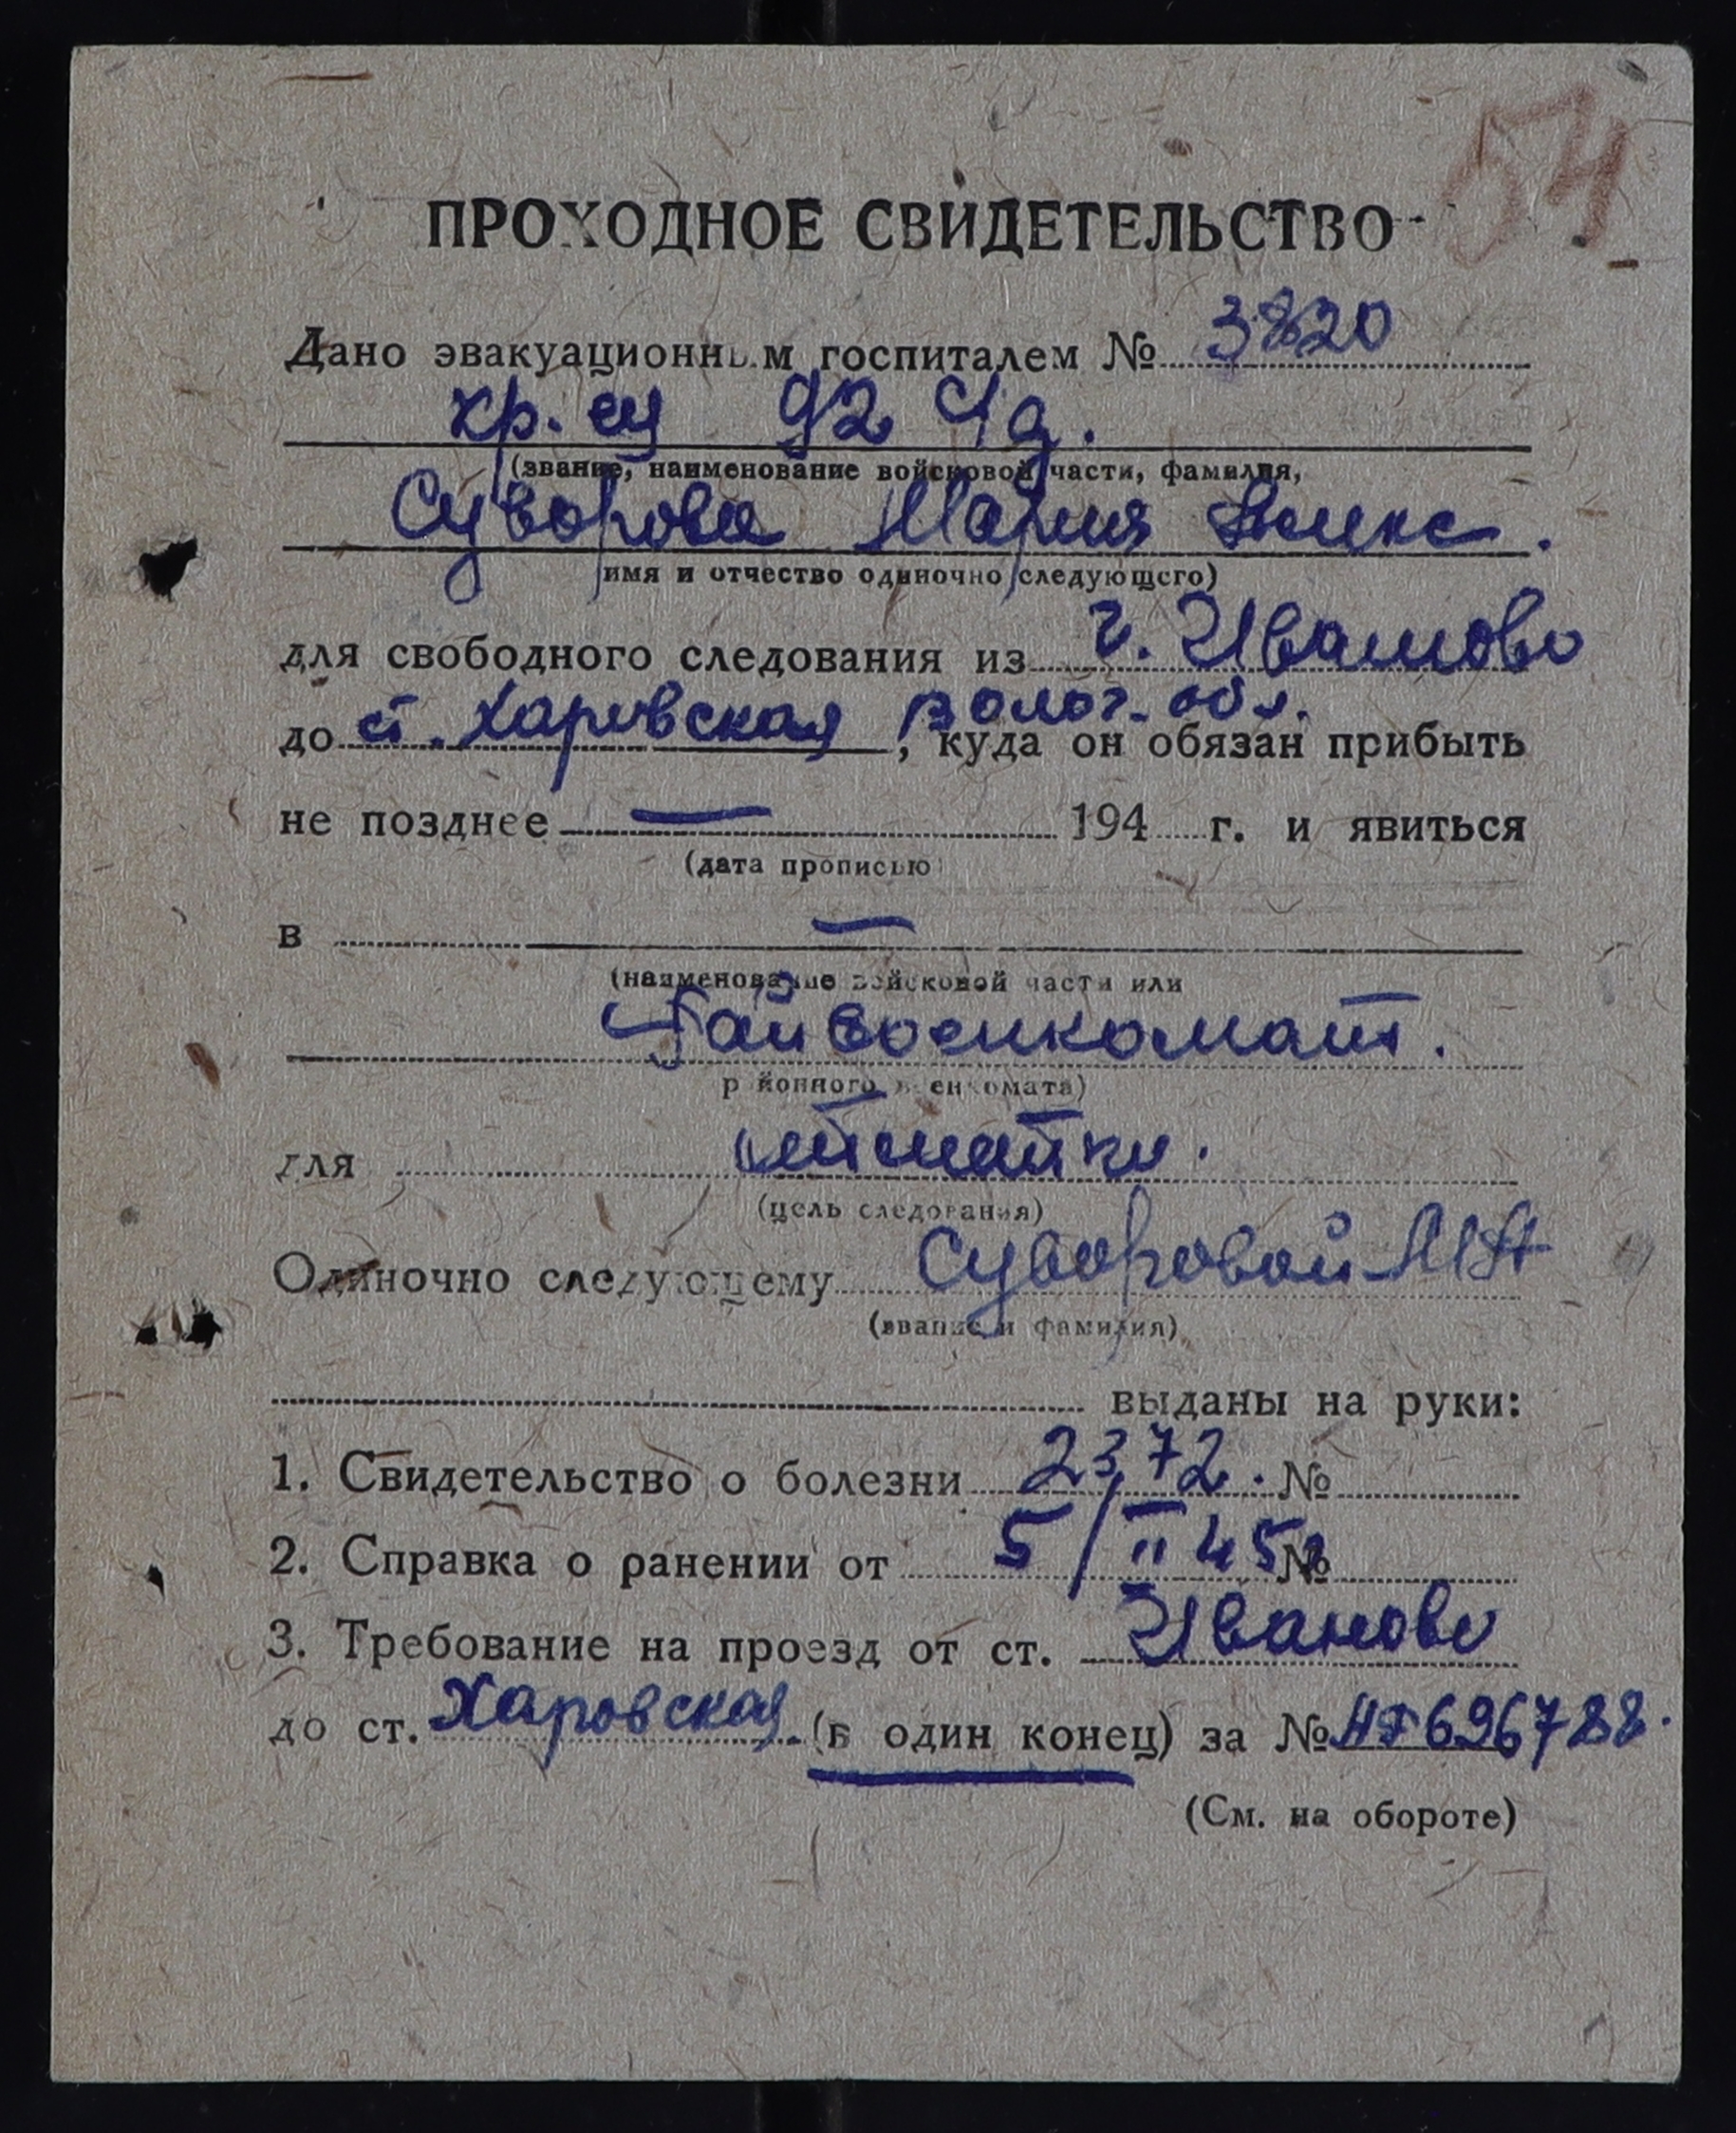 54
ПРОХОДНОЕ СВИДЕТЕЛЬСТВО
Дано эвакуационным госпиталем № 3820
кр. 92
(звание, наименование войсковой части, фамилия,
Суворова Мария
имя и отчество одиночно следующего)
для свободного следования из г. Иваново
до ст. Харовская Волог. обл.
, куда он обязан прибыть
не позднее — 194 г. и явиться
(дата прописью)
в —
(наименование войсковой части или
Райвоенкомат.
районного военкомата)
для
(цель следования)
Одиночно следующему Суворовой МА
(звание и фамилия)
выданы на руки:
1. Свидетельство о болезни 2372. №
2. Справка о ранении от 5/II 45 №
3. Требование на проезд от ст. Иваново
до ст. Харовская (в один конец) за № 696788.
(См. на обороте)